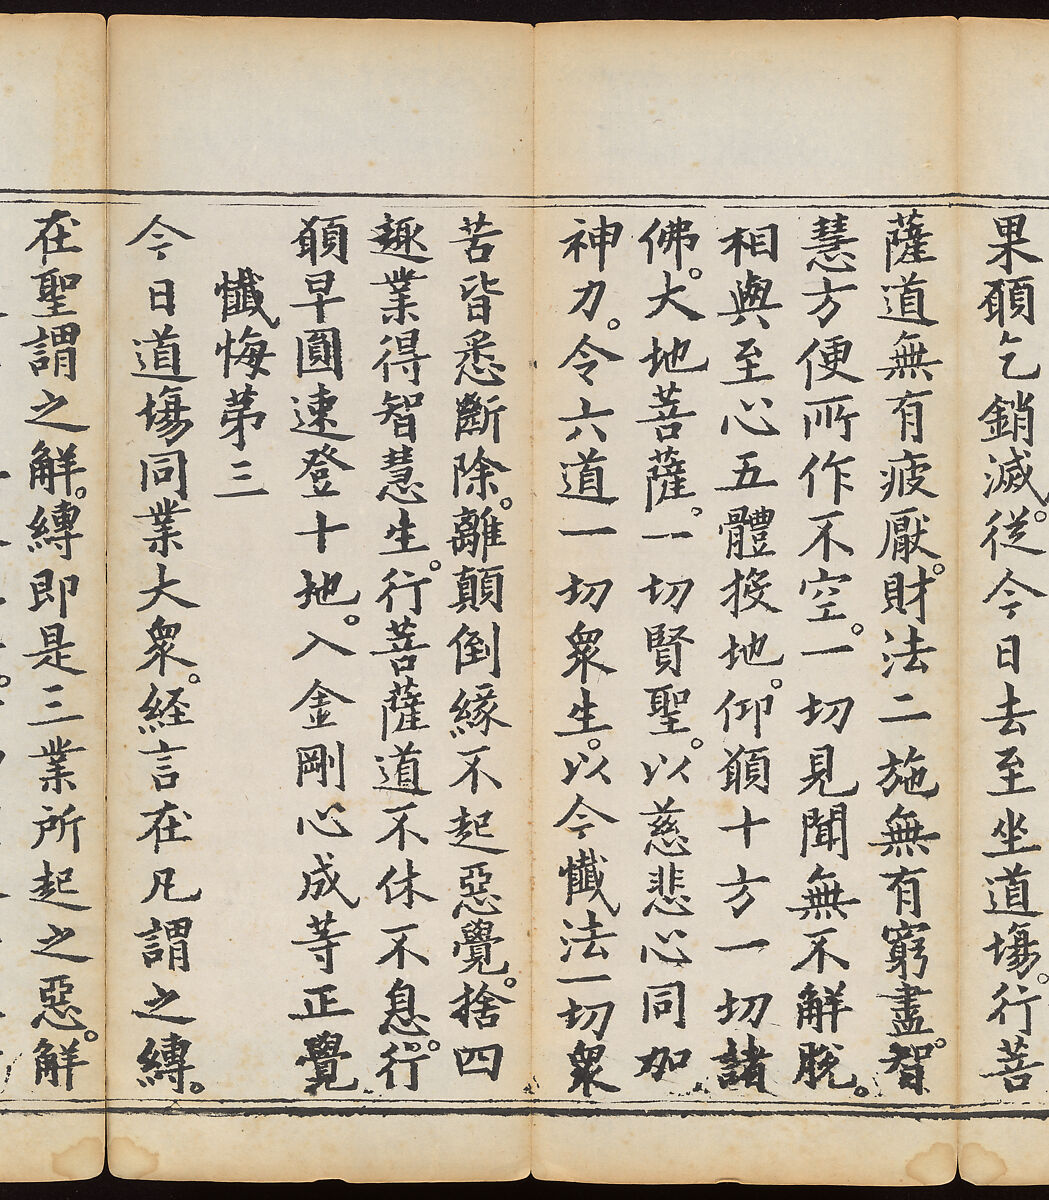 果願乞銷滅。從今日去至坐道塲。行菩
薩道無有疲厭。財法二施無有窮盡。智
慧方便所作不空。一切見聞無不解脫。
相與至心五體投地。仰願十方一切諸
佛。大地菩薩。一切賢聖。以慈悲心同加
神力。令六道一切衆生。以今懺法一切衆
苦皆悉斷除。離顛倒緣不起惡覺。捨四
趣業得智慧生。行菩薩道不休不息。行
願早圓速登十地。入金剛心成等正覺
懺悔第三
今日道塲同業大衆。経言在凡謂之縛。
在聖謂之解。縛即是三業所起之惡。解